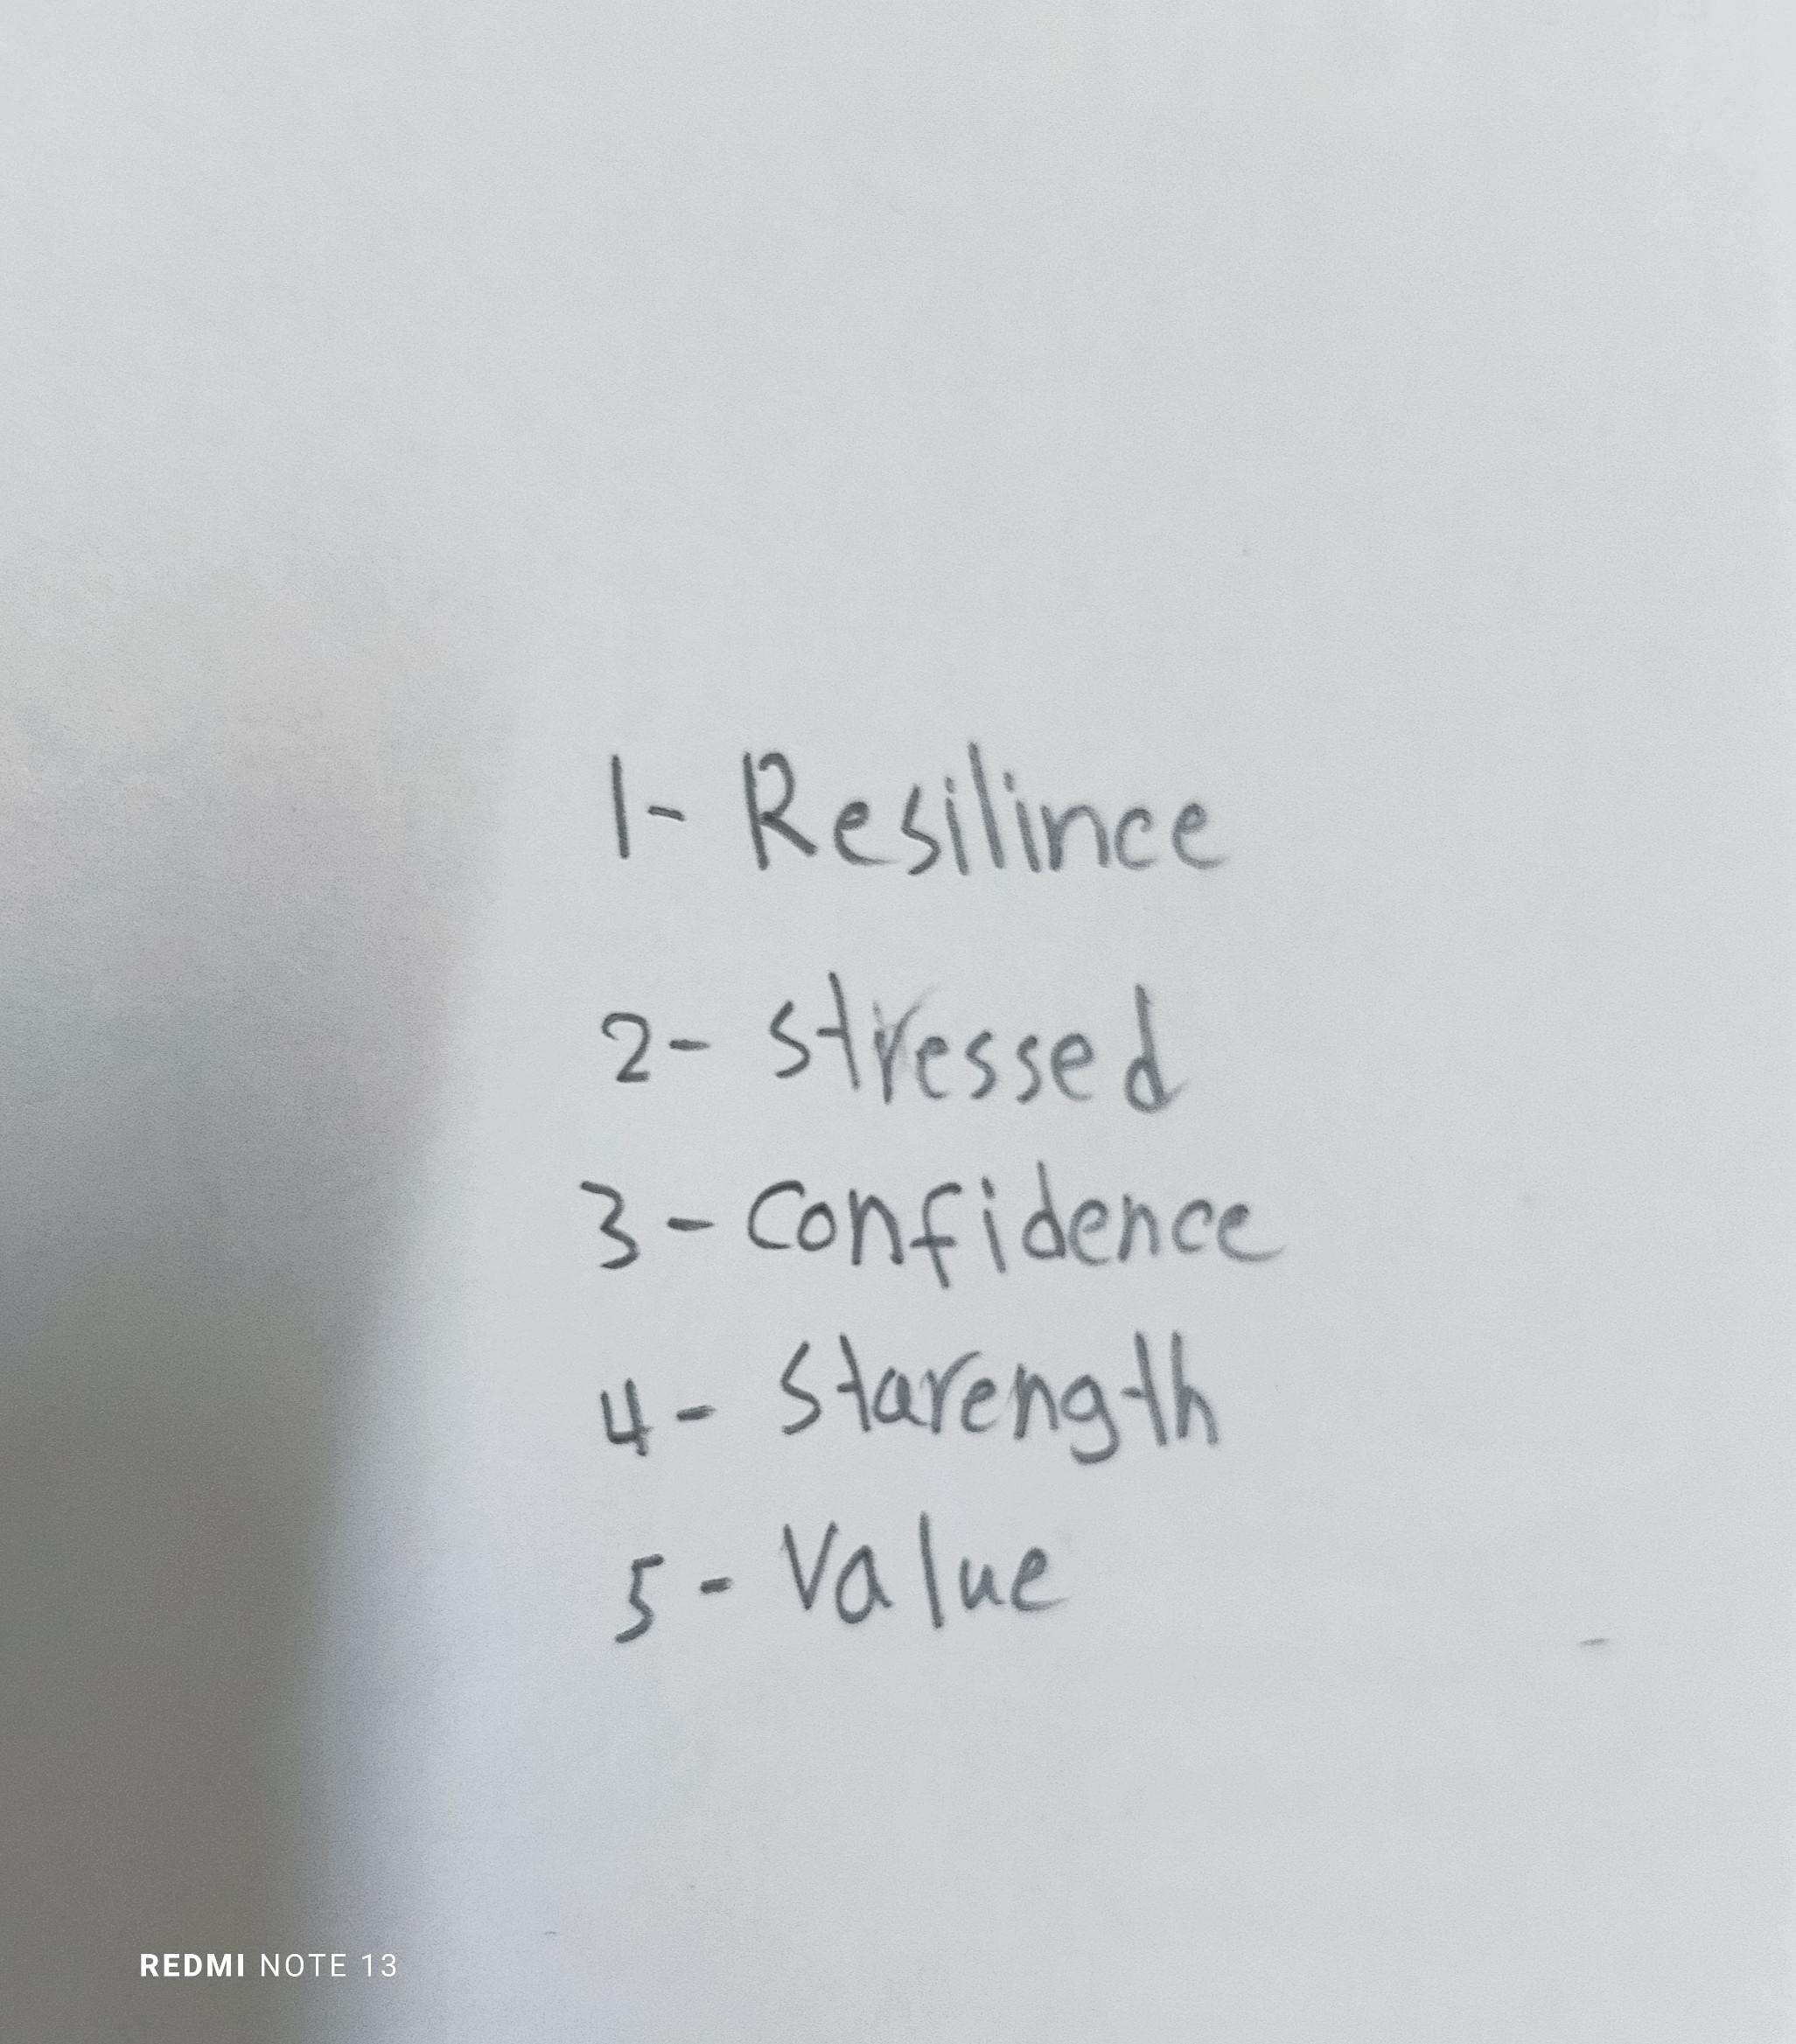 1- Resilince
2- stressed
3- Confidence
4- Starength
5- Value
REDMI NOTE 13